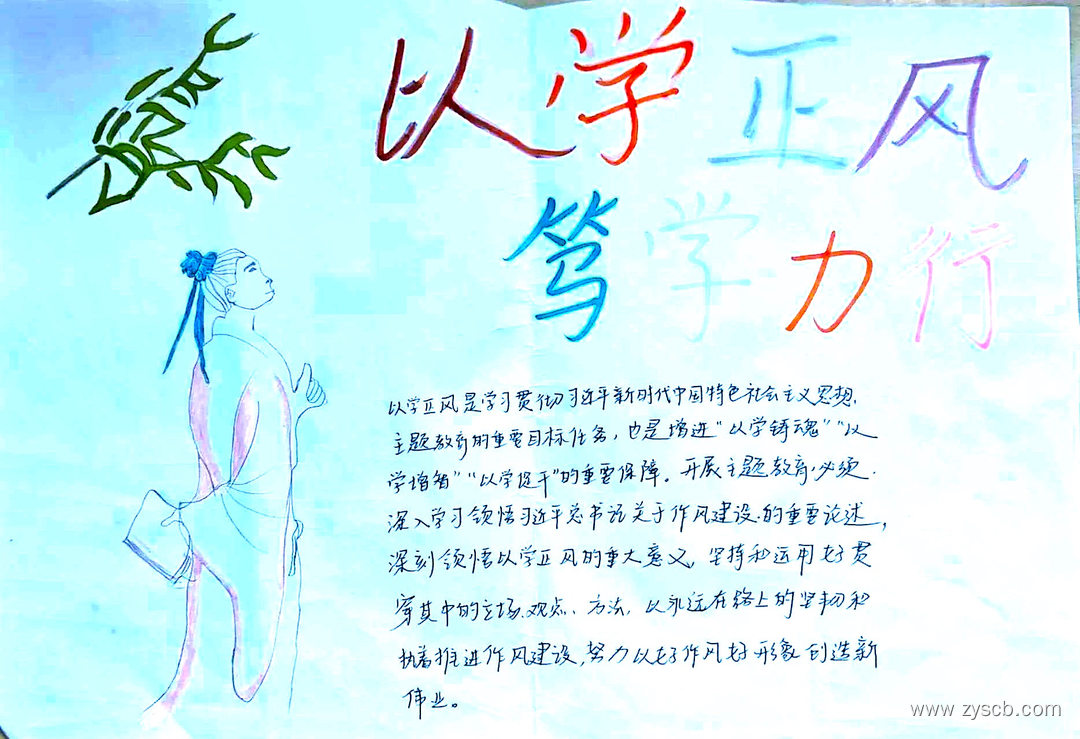 以学正风
笃学力行
以学正风是学习贯彻习近平新时代中国特色社会主义思想，
主题教育的重要目标任务，也是增进“以学铸魂”“以
学增智”“以学促干”的重要保障。开展主题教育，必须
深入学习领悟习近平总书记关于作风建设的重要论述，
深刻领悟以学正风的重大意义，坚持和运用好贯
穿其中的立场、观点、方法，以永远在路上的坚韧和
执着推进作风建设，努力以好作风好形象创造新
伟业。
www.zyscb.com